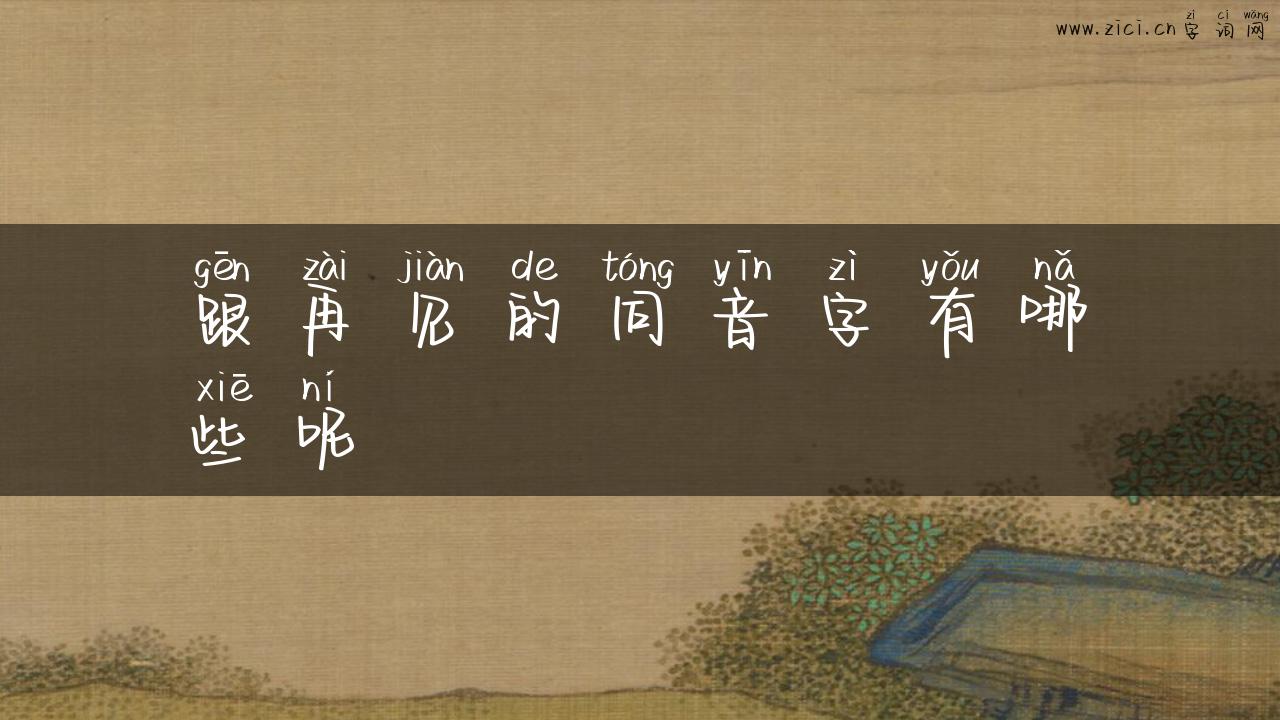 zì cí wǎng
www.zici.cn 字 词 网
gēn zài jiàn de tóng yīn zì yǒu nǎ
跟 再 见 的 同 音 字 有 哪
xiē ní
些 呢